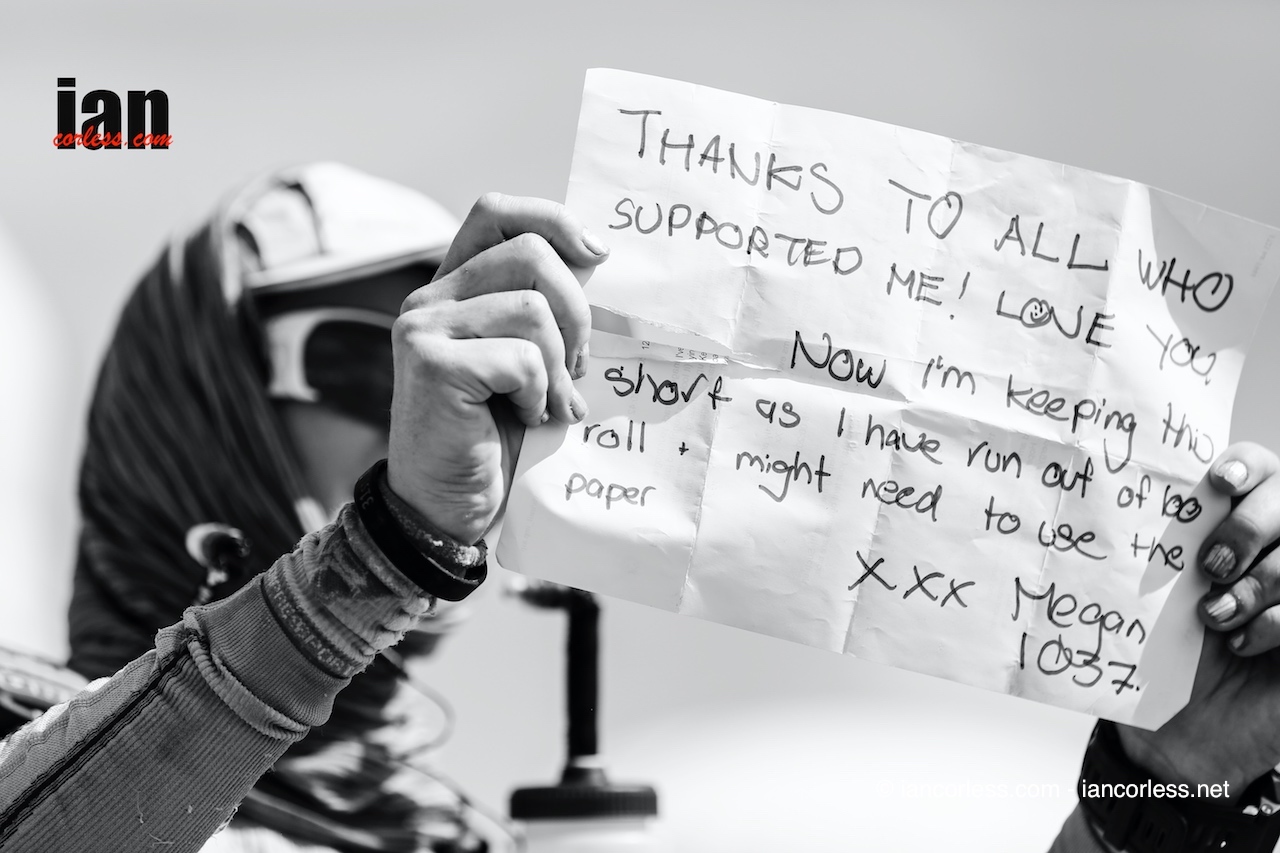 ian
corless.com
THANKS TO ALL WHO
SUPPORTED ME! LOVE YOU
Now I'm keeping this
short as I have run out of
roll + might need to use the
paper
xxx Megan
1037.
iancorless.com - iancorless.net